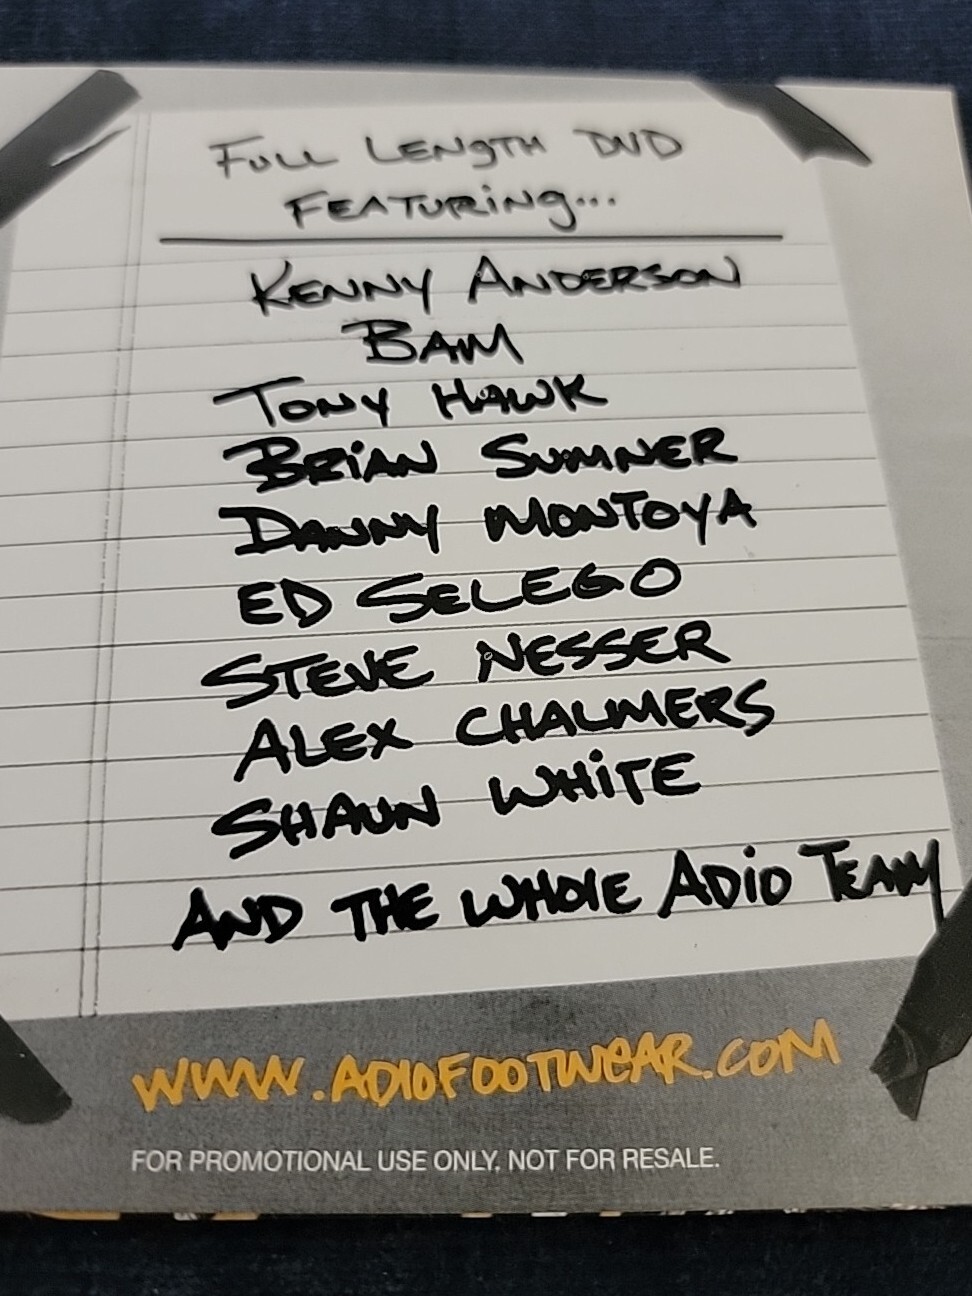 FULL LENGTH DVD
FEATURiNg...
KENNY ANDERSON
BAM
TONY HAWK
BRiAN SUMNER
DANNY MONTOYA
ED SELEGO
STEVE NESSER
ALEX CHALMERS
SHAUN WHiTE
AND THE WHOlE ADiO TEAM
WWW.ADIOFOOTWEAR.COM
FOR PROMOTIONAL USE ONLY. NOT FOR RESALE.